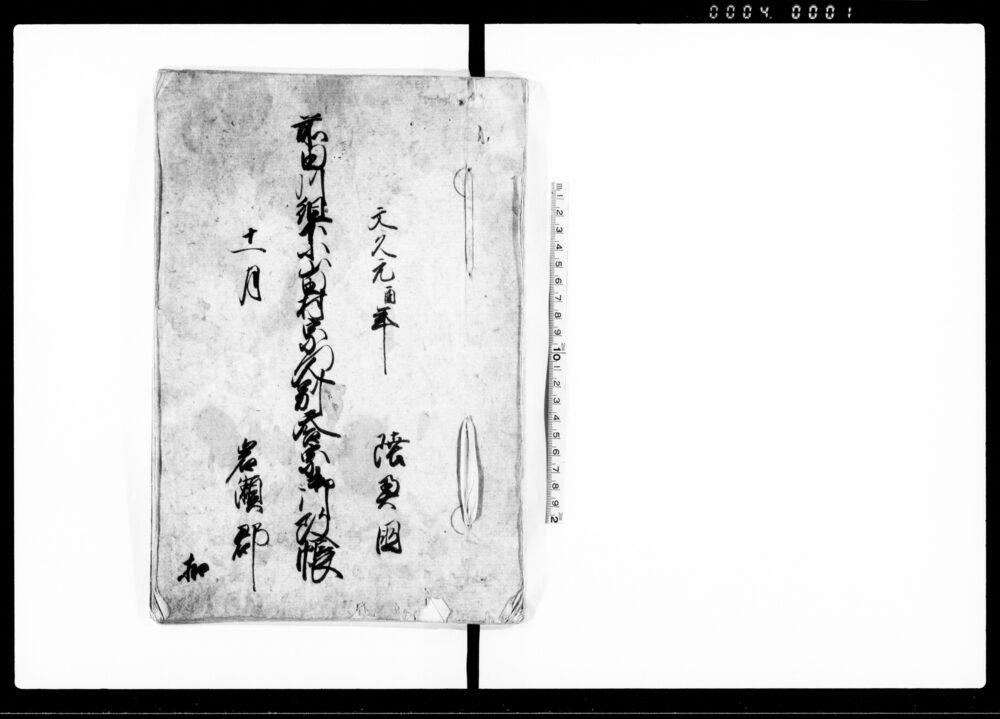 0004. 0001
文久元酉年
陸奥国
前田川組下小山田村宗門人別御改帳
十一月
岩瀬郡
扣
1 2 3 4 5 6 7 8 9 10 1 2 3 4 5 6 7 8 9 2